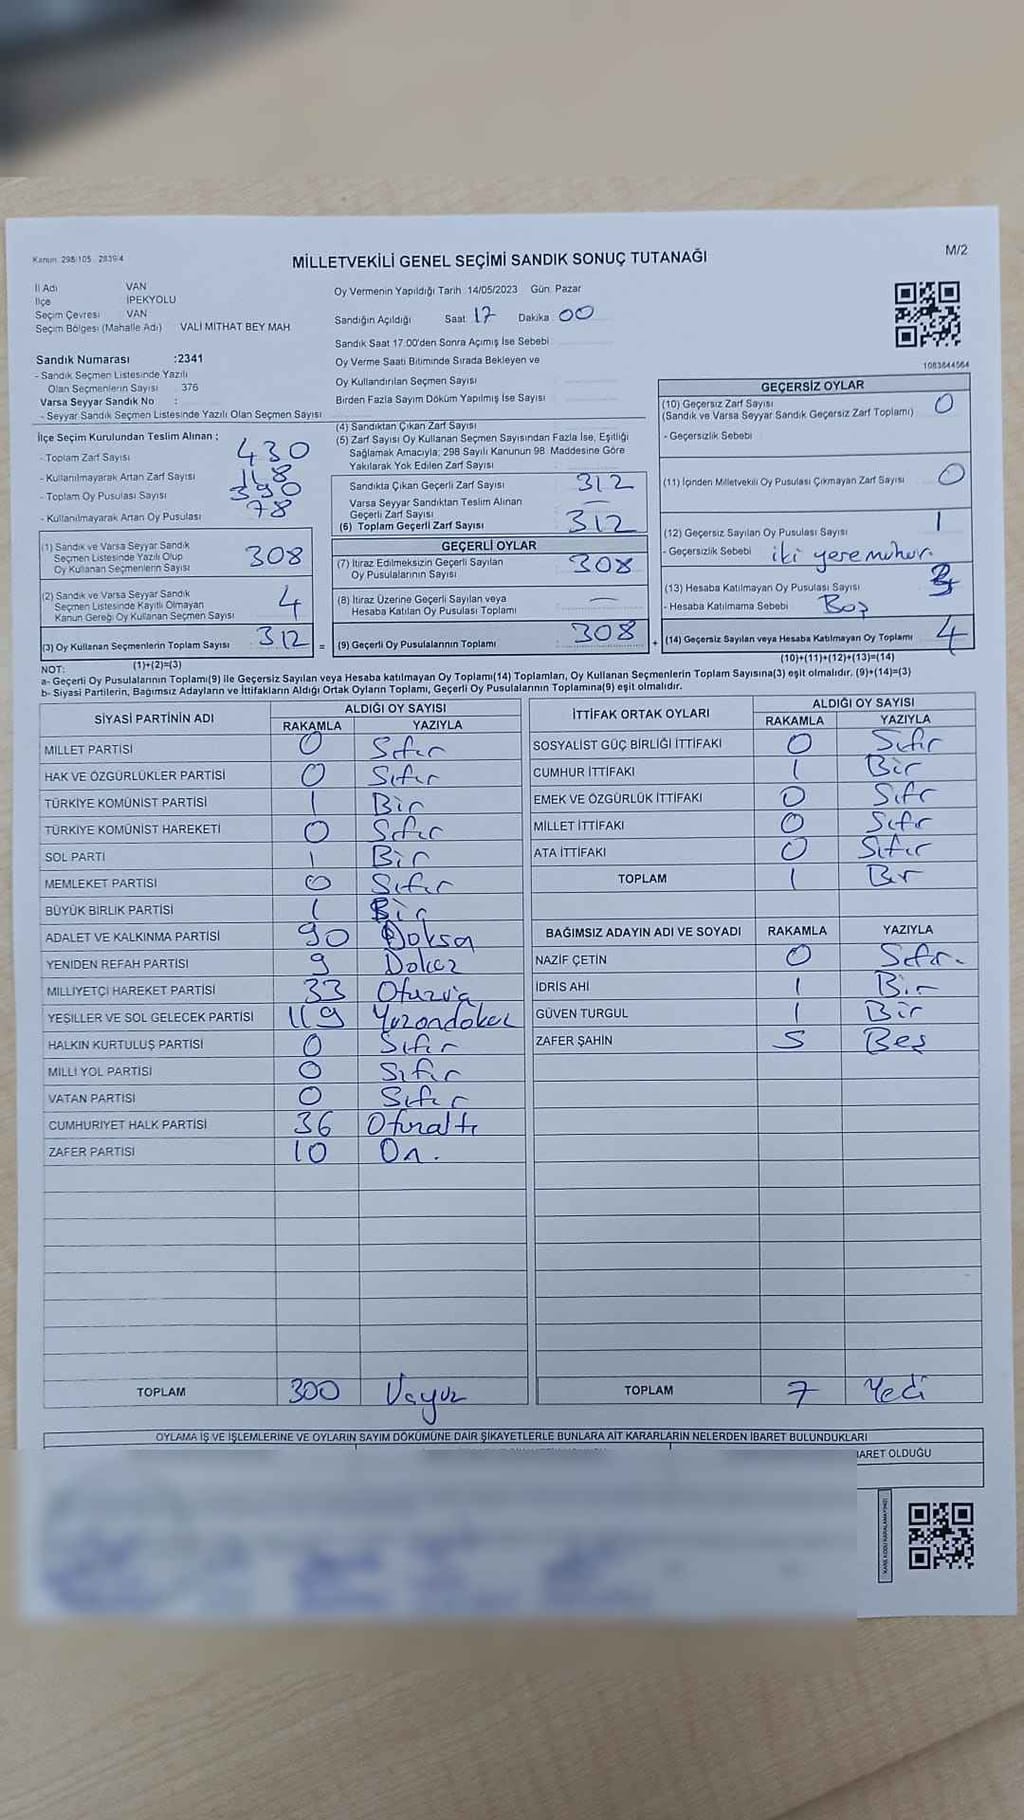 Kanun: 298/105 - 2839/4
MİLLETVEKİLİ GENEL SEÇİMİ SANDIK SONUÇ TUTANAĞI
M/2
İl Adı VAN
İlçe İPEKYOLU
Seçim Çevresi VAN
Seçim Bölgesi (Mahalle Adı) VALİ MİTHAT BEY MAH
Sandık Numarası :2341
- Sandık Seçmen Listesinde Yazılı
Olan Seçmenlerin Sayısı : 376
Varsa Seyyar Sandık No :
- Seyyar Sandık Seçmen Listesinde Yazılı Olan Seçmen Sayısı
Oy Vermenin Yapıldığı Tarih : 14/05/2023 Gün: Pazar
Sandığın Açıldığı Saat 17 Dakika 00
Sandık Saat 17:00'den Sonra Açımış İse Sebebi
Oy Verme Saati Bitiminde Sırada Bekleyen ve
Oy Kullandırılan Seçmen Sayısı
Birden Fazla Sayım Döküm Yapılmış İse Sayısı
1083644564
İlçe Seçim Kurulundan Teslim Alınan :
- Toplam Zarf Sayısı 430
- Kullanılmayarak Artan Zarf Sayısı 118
- Toplam Oy Pusulası Sayısı 390
- Kullanılmayarak Artan Oy Pusulası 78
(1) Sandık ve Varsa Seyyar Sandık
Seçmen Listesinde Yazılı Olup
Oy Kullanan Seçmenlerin Sayısı 308
(2) Sandık ve Varsa Seyyar Sandık
Seçmen Listesinde Kayıtlı Olmayan
Kanun Gereği Oy Kullanan Seçmen Sayısı 4
(3) Oy Kullanan Seçmenlerin Toplam Sayısı 312 =
(1)+(2)=(3)
(4) Sandıktan Çıkan Zarf Sayısı
(5) Zarf Sayısı Oy Kullanan Seçmen Sayısından Fazla İse, Eşitliği
Sağlamak Amacıyla; 298 Sayılı Kanunun 98. Maddesine Göre
Yakılarak Yok Edilen Zarf Sayısı
Sandıkta Çıkan Geçerli Zarf Sayısı 312
Varsa Seyyar Sandıktan Teslim Alınan
Geçerli Zarf Sayısı —
(6) Toplam Geçerli Zarf Sayısı 312
GEÇERLİ OYLAR
(7) İtiraz Edilmeksizin Geçerli Sayılan
Oy Pusulalarının Sayısı 308
(8) İtiraz Üzerine Geçerli Sayılan veya
Hesaba Katılan Oy Pusulası Toplamı —
(9) Geçerli Oy Pusulalarının Toplamı 308 +
GEÇERSİZ OYLAR
(10) Geçersiz Zarf Sayısı 0
(Sandık ve Varsa Seyyar Sandık Geçersiz Zarf Toplamı)
- Geçersizlik Sebebi
(11) İçinden Milletvekili Oy Pusulası Çıkmayan Zarf Sayısı 0
(12) Geçersiz Sayılan Oy Pusulası Sayısı 1
- Geçersizlik Sebebi iki yere mühür.
(13) Hesaba Katılmayan Oy Pusulası Sayısı 3
- Hesaba Katılmama Sebebi Boş
(14) Geçersiz Sayılan veya Hesaba Katılmayan Oy Toplamı 4
(10)+(11)+(12)+(13)=(14)
NOT:
a- Geçerli Oy Pusulalarının Toplamı(9) ile Geçersiz Sayılan veya Hesaba katılmayan Oy Toplamı(14) Toplamları, Oy Kullanan Seçmenlerin Toplam Sayısına(3) eşit olmalıdır. (9)+(14)=(3)
b- Siyasi Partilerin, Bağımsız Adayların ve İttifakların Aldığı Ortak Oyların Toplamı, Geçerli Oy Pusulalarının Toplamına(9) eşit olmalıdır.
SİYASİ PARTİNİN ADI ALDIĞI OY SAYISI
RAKAMLA YAZIYLA
MİLLET PARTİSİ 0 Sıfır
HAK VE ÖZGÜRLÜKLER PARTİSİ 0 Sıfır
TÜRKİYE KOMÜNİST PARTİSİ 1 Bir
TÜRKİYE KOMÜNİST HAREKETİ 0 Sıfır
SOL PARTİ 1 Bir
MEMLEKET PARTİSİ 0 Sıfır
BÜYÜK BİRLİK PARTİSİ 1 Bir
ADALET VE KALKINMA PARTİSİ 90 Doksa
YENİDEN REFAH PARTİSİ 9 Dokuz
MİLLİYETÇİ HAREKET PARTİSİ 33 Otuzüç
YEŞİLLER VE SOL GELECEK PARTİSİ 119 Yüzondokuz
HALKIN KURTULUŞ PARTİSİ 0 Sıfır
MİLLİ YOL PARTİSİ 0 Sıfır
VATAN PARTİSİ 0 Sıfır
CUMHURİYET HALK PARTİSİ 36 Otuzaltı
ZAFER PARTİSİ 10 On.
TOPLAM 300 Üçyüz
İTTİFAK ORTAK OYLARI ALDIĞI OY SAYISI
RAKAMLA YAZIYLA
SOSYALİST GÜÇ BİRLİĞİ İTTİFAKI 0 Sıfır
CUMHUR İTTİFAKI 1 Bir
EMEK VE ÖZGÜRLÜK İTTİFAKI 0 Sıfr
MİLLET İTTİFAKI 0 Sıfır
ATA İTTİFAKI 0 Sıfır
TOPLAM 1 Bir
BAĞIMSIZ ADAYIN ADI VE SOYADI RAKAMLA YAZIYLA
NAZİF ÇETİN 0 Sıfır.
İDRİS AHİ 1 Bir
GÜVEN TURGUL 1 Bir
ZAFER ŞAHİN 5 Beş
TOPLAM 7 Yedi
OYLAMA İŞ VE İŞLEMLERİNE VE OYLARIN SAYIM DÖKÜMÜNE DAİR ŞİKAYETLERLE BUNLARA AİT KARARLARIN NELERDEN İBARET BULUNDUKLARI
BARET OLDUĞU
KARE KODU KARALAMAYINIZ!